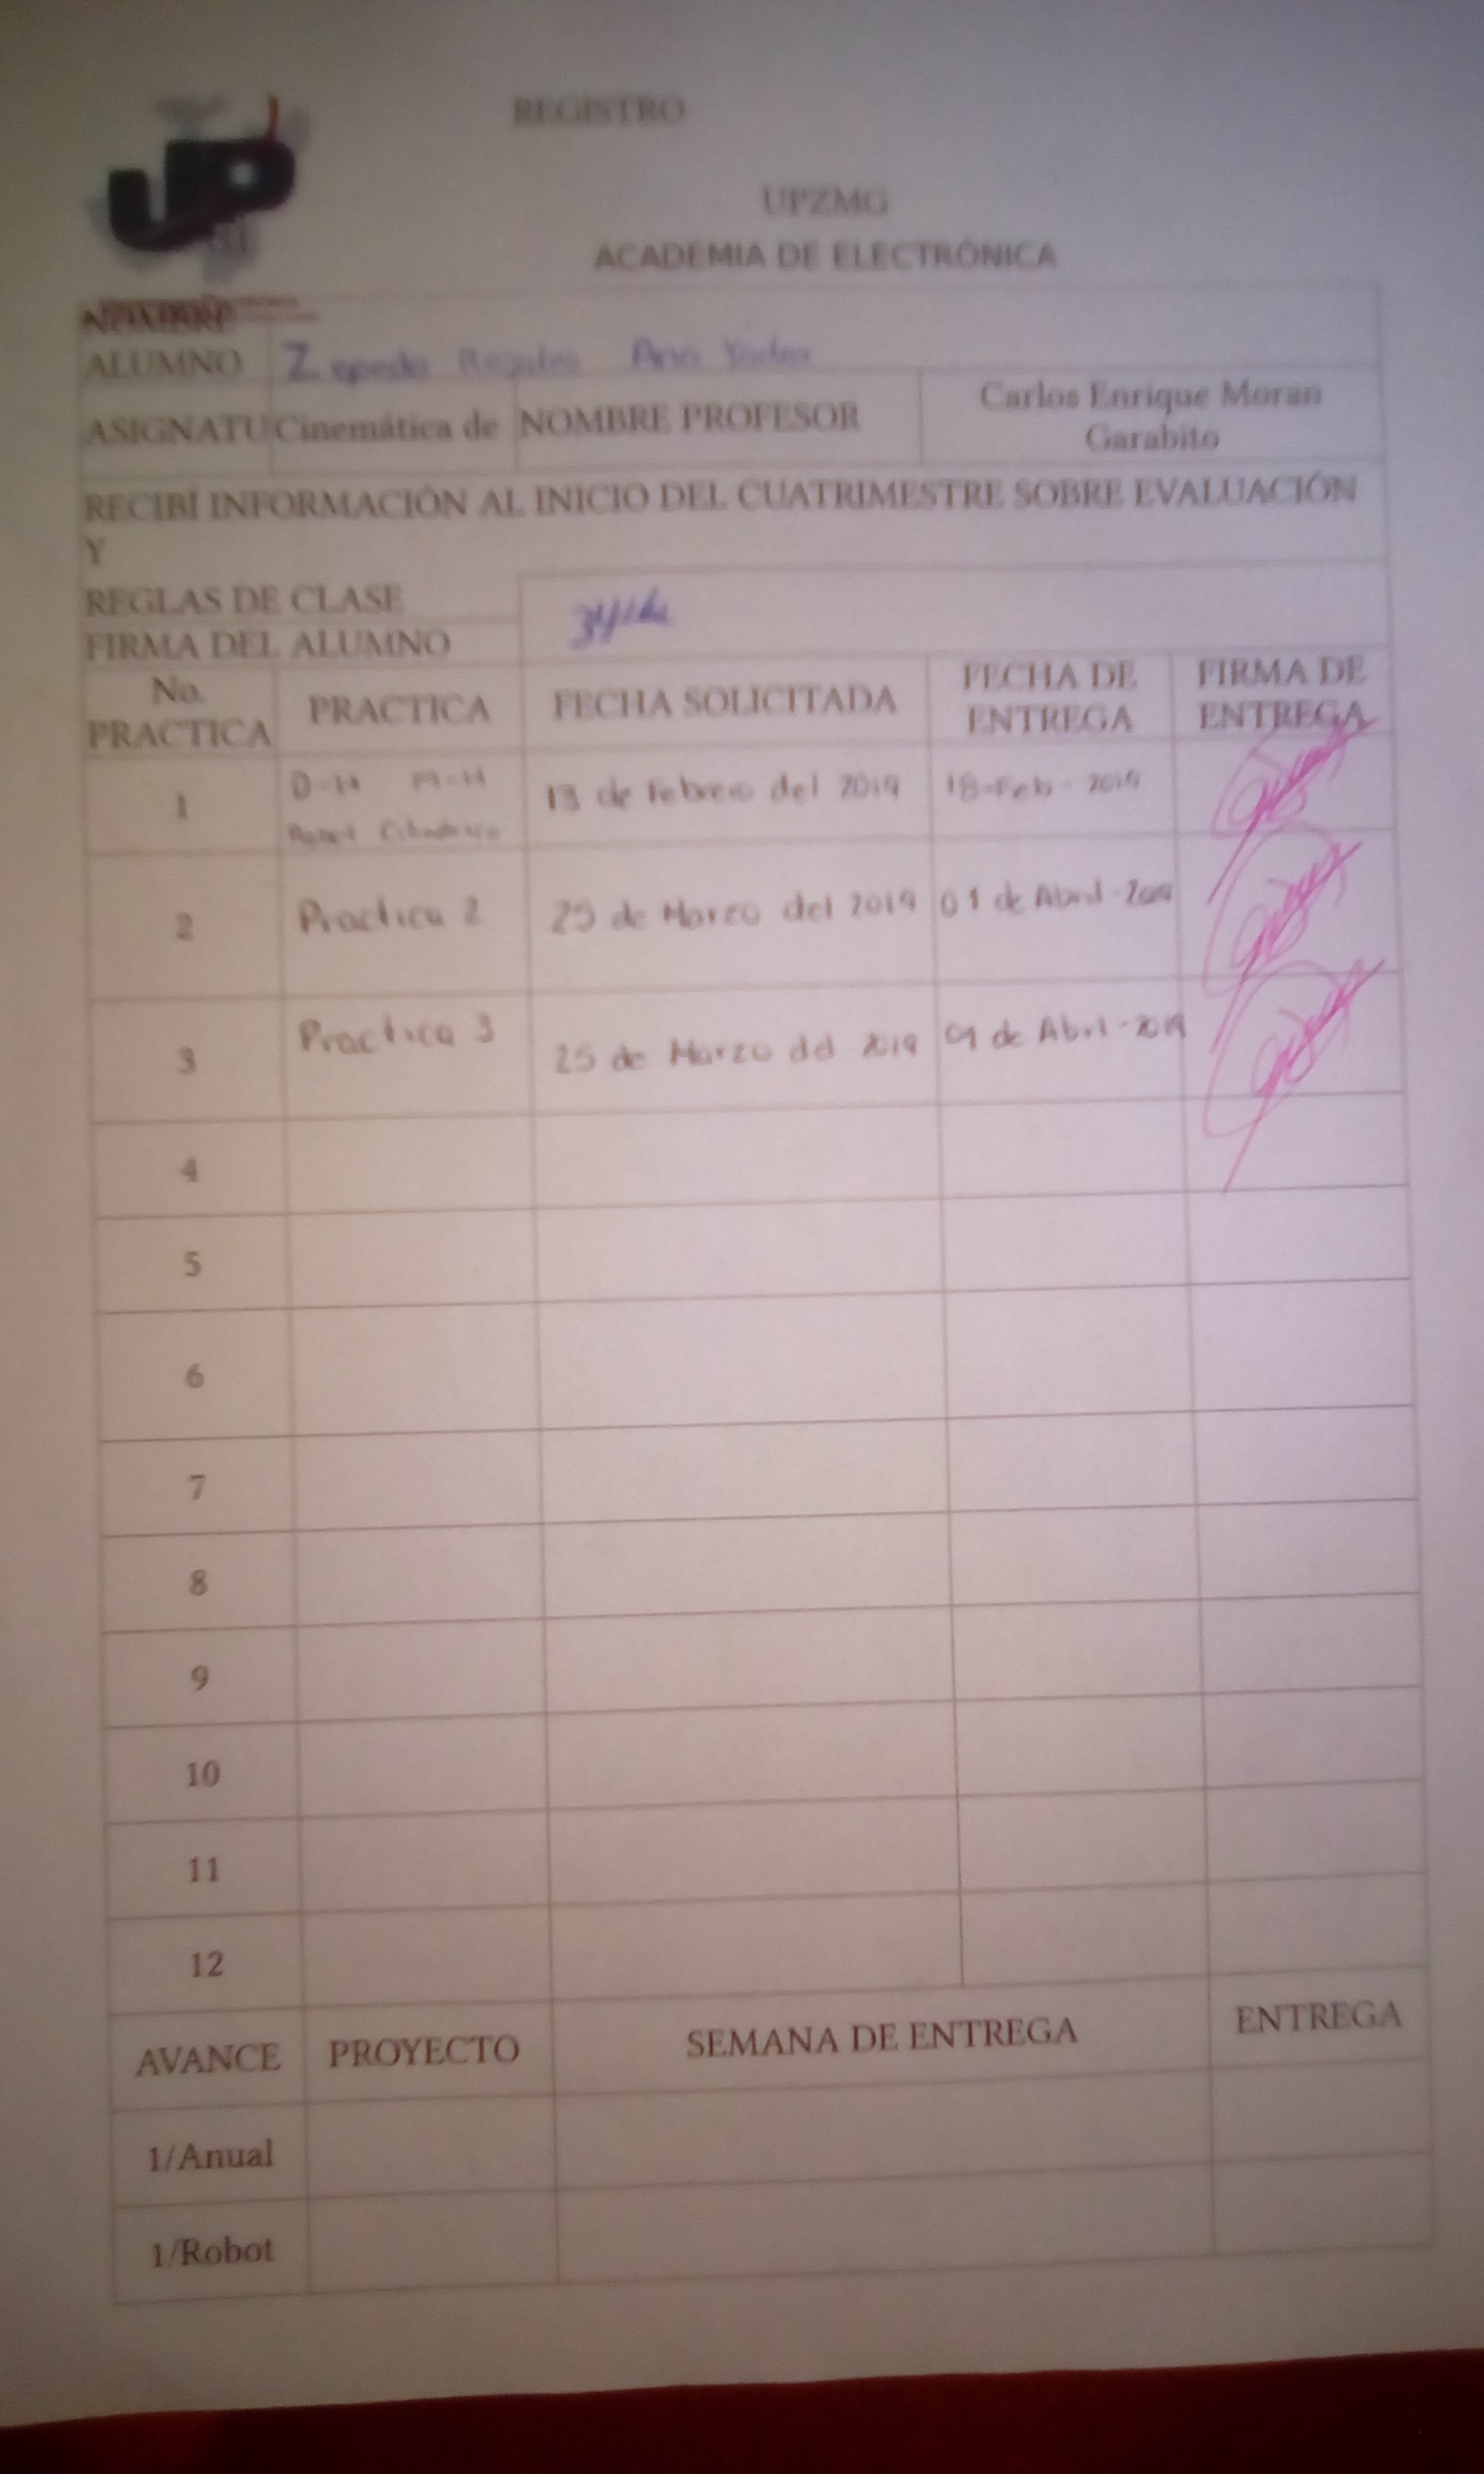 REGISTRO
UPZMG
ACADEMIA DE ELECTRÓNICA
NOMBRE
ALUMNO Zepeda Rosales Ana
ASIGNATU Cinemática de NOMBRE PROFESOR Carlos Enrique Moran
Garabito
RECIBÍ INFORMACIÓN AL INICIO DEL CUATRIMESTRE SOBRE EVALUACIÓN
Y
REGLAS DE CLASE
FIRMA DEL ALUMNO
No.
PRACTICA PRACTICA FECHA SOLICITADA FECHA DE
ENTREGA FIRMA DE
ENTREGA
1 D-H M-H
Robot 13 de Febrero del 2019 18-Feb-2019
2 Practica 2 25 de Marzo del 2019 01 de Abril-2019
3 Practica 3 25 de Marzo del 2019 01 de Abril-2019
4
5
6
7
8
9
10
11
12
AVANCE PROYECTO SEMANA DE ENTREGA ENTREGA
1/Anual
1/Robot